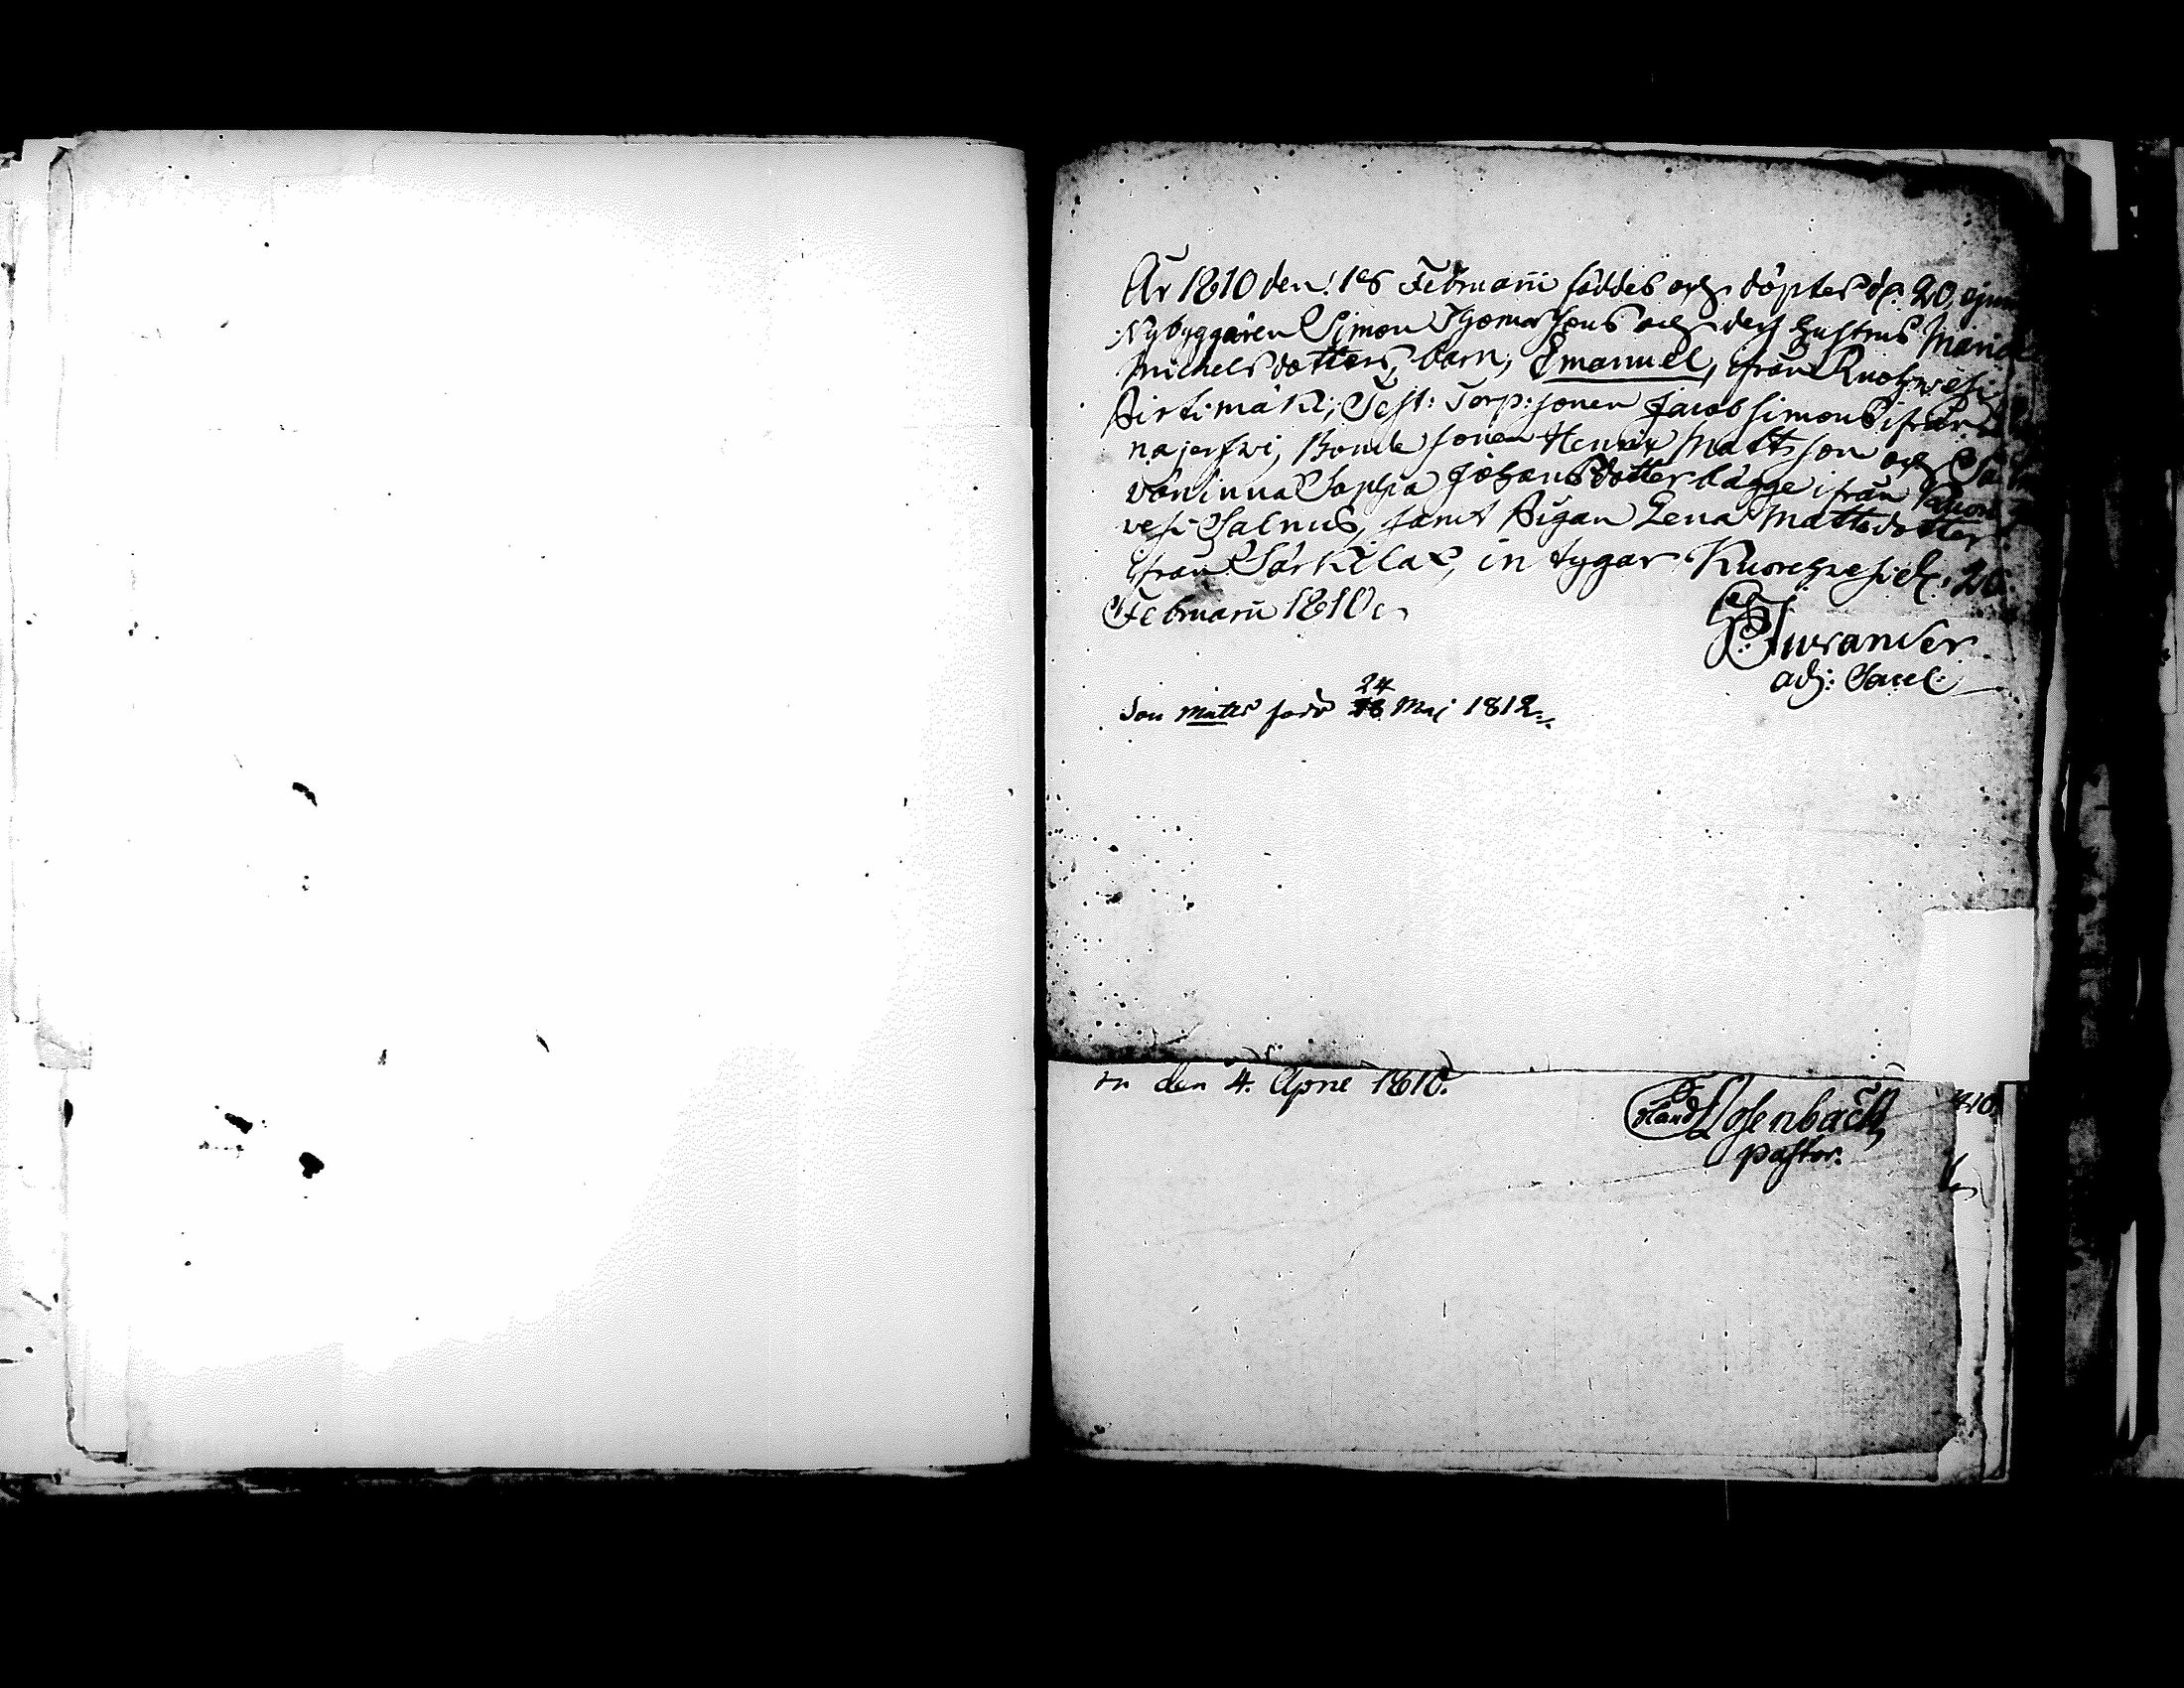 År 1810 den 18 Februarii föddes och döptes d. 20 ejusd
Nybyggaren Simon Thomassons och dess hustrus Maria
Michelsdotters, barn, Emanuel, ifrån Ruohwesi
Pirtimäki; Test: Torp: sonen Jacob Simons ifrån
najerfwi, Bonde sonen Henrik Mattsson och
värdinna Sophia Johansdotter bägge ifrån Ruoh
vesi Salnus, samt Pigan Lena Mattsdotter
ifrån Särkilax, in tygar Ruorehvesi d. 20
Februarii 1810
adj: Sacel:
24
Son Matts född 18 Maj 1812
en den 4. April 1810.
Losenback
pastor.
1810